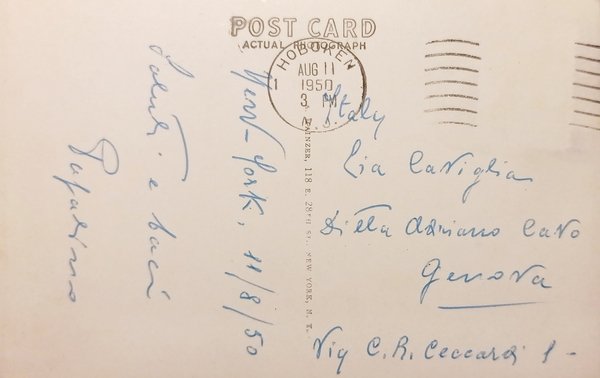 POST CARD
ACTUAL PHOTOGRAPH
HOBOKEN
AUG 11
1
1950
3 PM
N. J.
New-York, 11/8/50
Saluti e baci
Papalino
MAINZER, 118 E. 28TH ST., NEW YORK, N. Y.
Italy
Lia Caviglia
Ditta Adriano Cavo
Genova
Via C. R. Ceccardi 1-